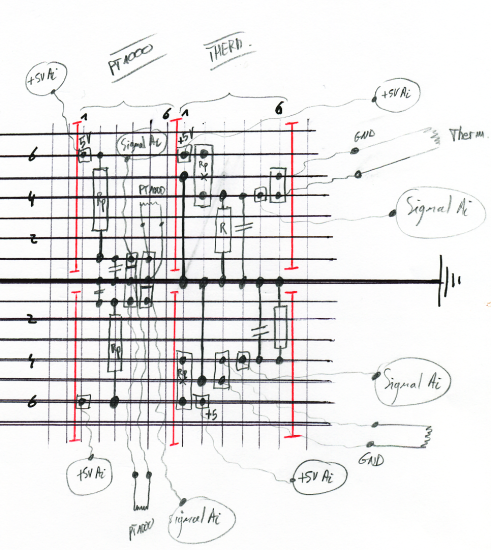 PT1000
THERM.
+5V Ai
+5V Ai
1
6
1
6
5V
+5V
Signal Ai
GND
Therm.
6
Rp
PT1000
Rp
4
Rp
R
Signal Ai
2
2
Rp
4
Rp
Signal Ai
6
+5
GND
+5V Ai
+5V Ai
PT1000
Signal Ai